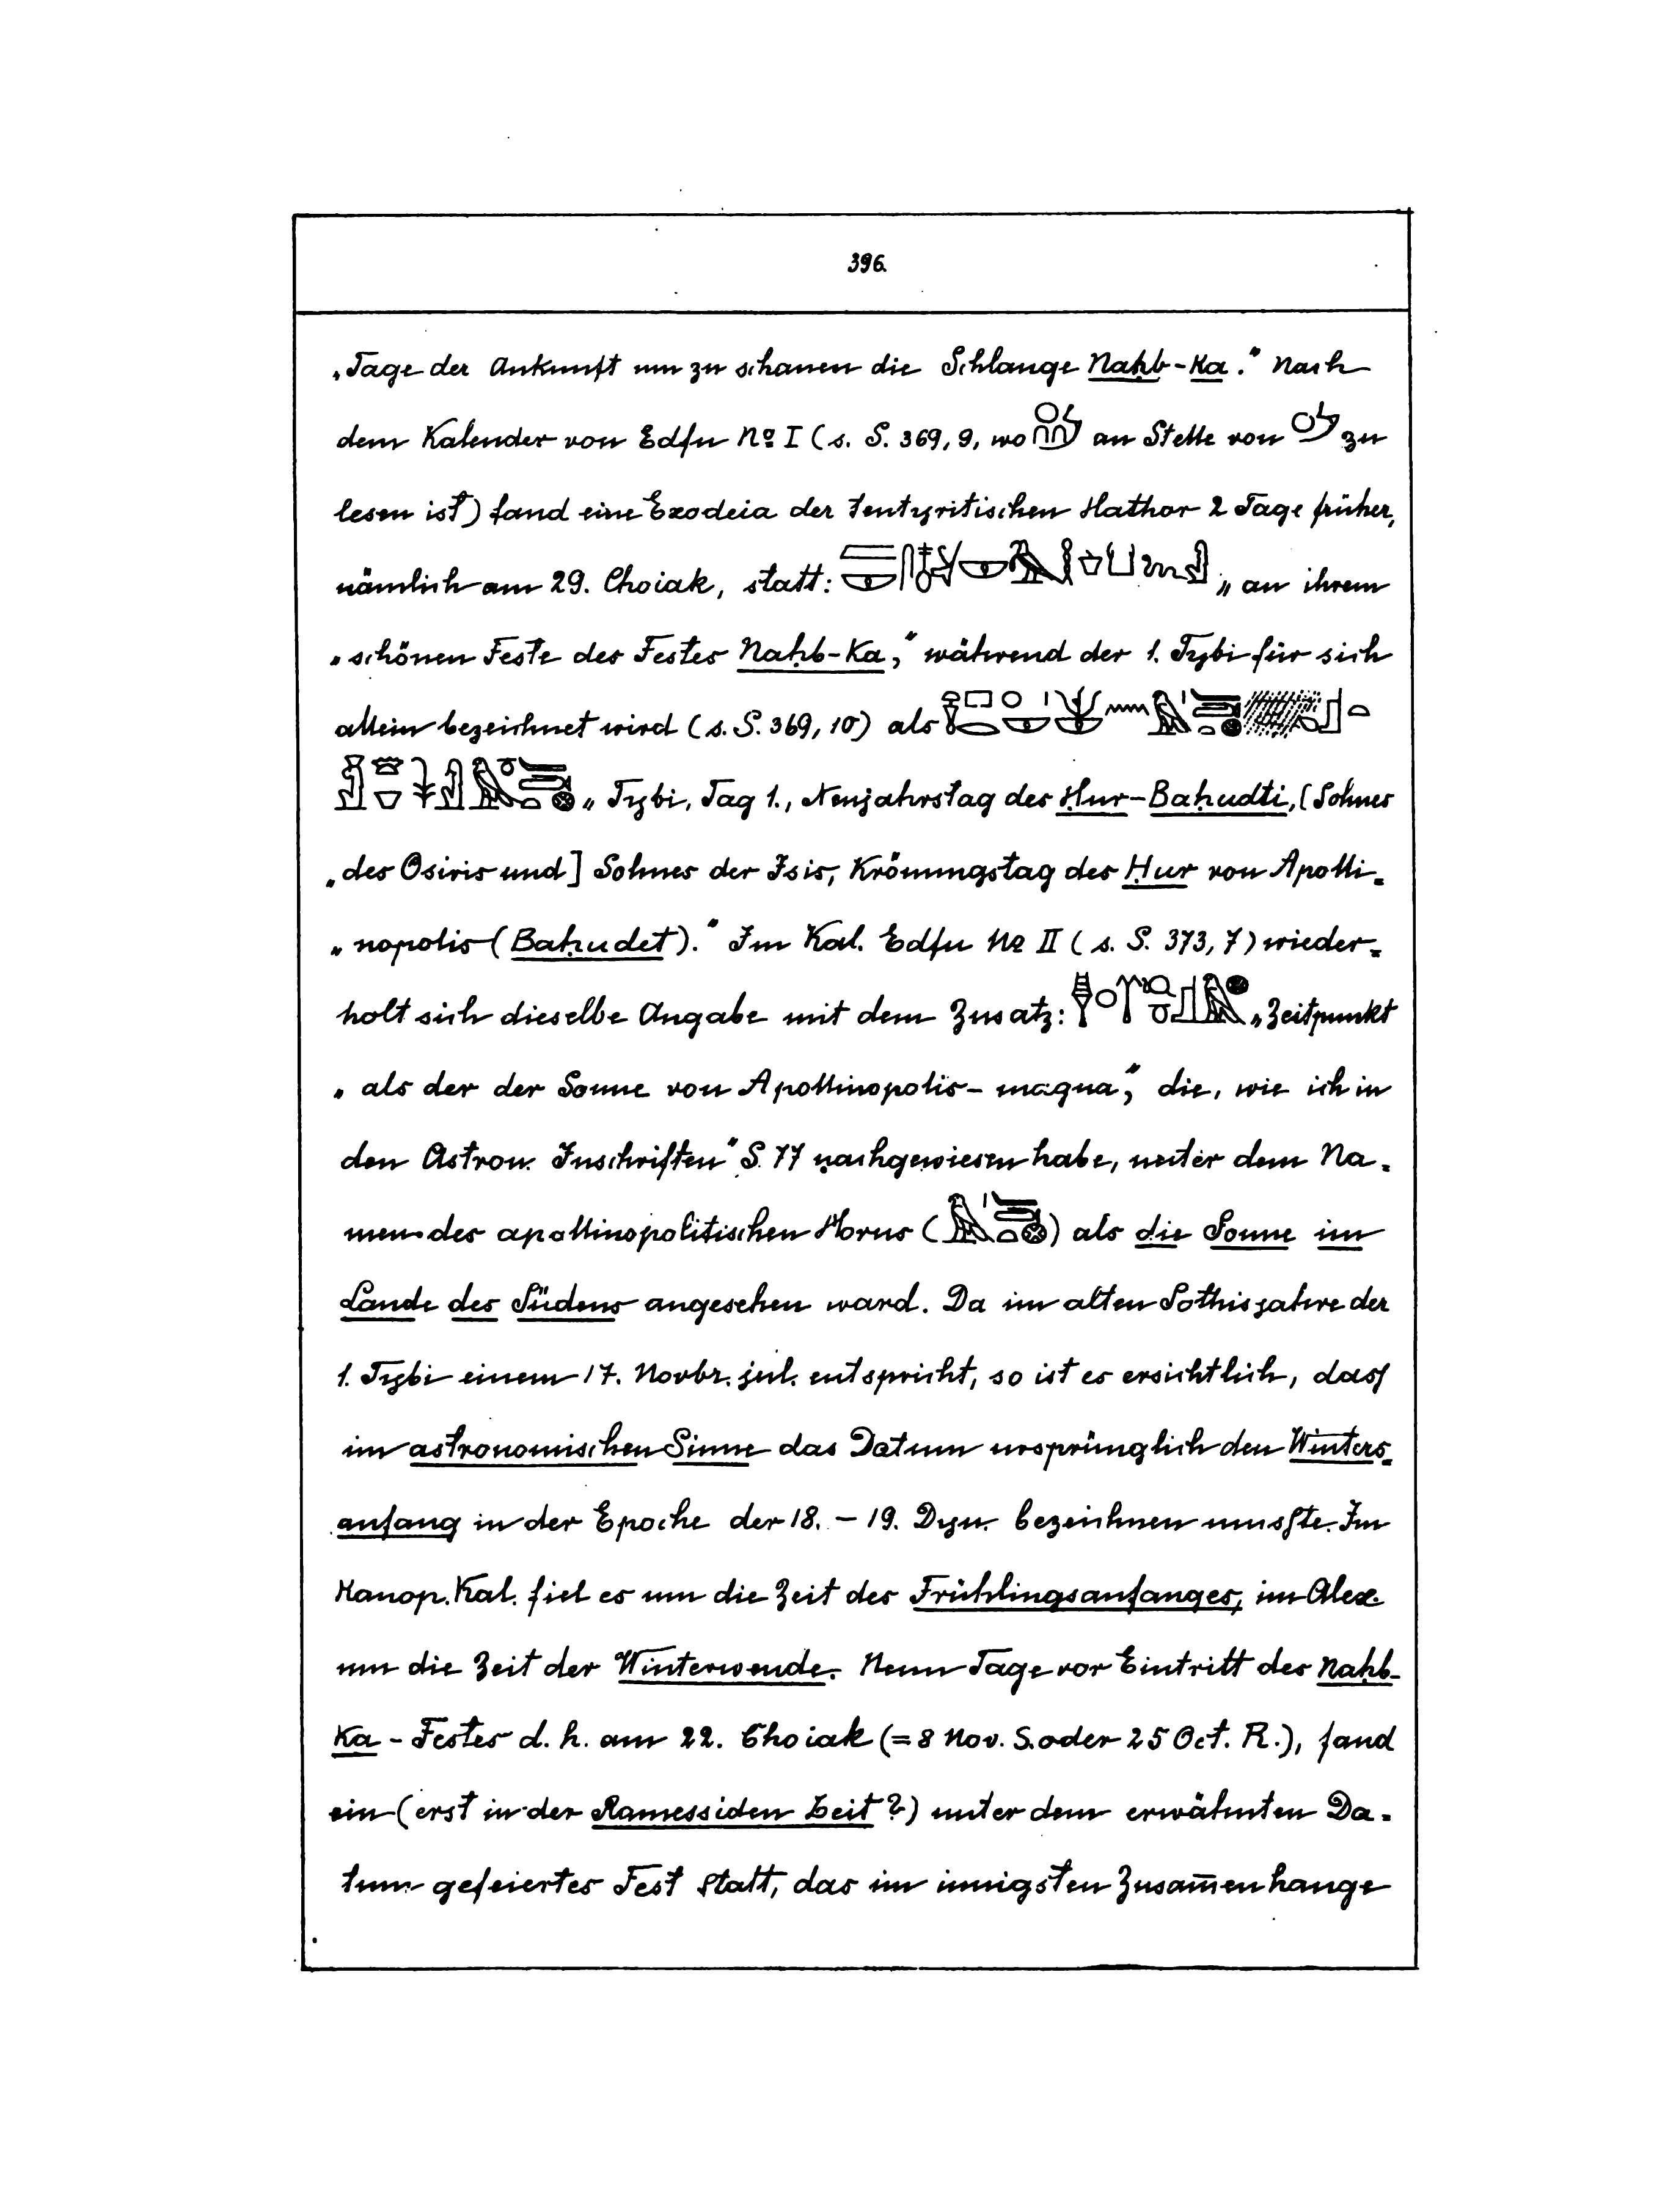 396.
„Tage der Ankunft um zu schauen die Schlange Naḥb-Ka.“ Nach
dem Kalender von Edfu No I (s. S. 369, 9, wo an Stelle von zu
lesen ist) fand eine Exodeia der tentyritischen Hathor 2 Tage früher,
nämlich am 29. Choiak, statt: „an ihrem
„schönen Feste des Festes Naḥb-Ka,“ während der 1. Tybi für sich
allein bezeichnet wird (s. S. 369, 10) als
„Tybi, Tag 1., Neujahrstag des Hur-Baḥudti, [Sohnes
„des Osiris und] Sohnes der Isis, Krönungstag des Hur von Apolli-
„nopolis (Baḥudet).“ Im Kal. Edfu No II (s. S. 373, 7) wieder-
holt sich dieselbe Angabe mit dem Zusatz: „Zeitpunkt
„als der der Sonne von Apollinopolis-magna“, die, wie ich in
den Astron. Inschriften“ S. 77 nachgewiesen habe, unter dem Na-
men des apollinopolitischen Horus ( ) als die Sonne im
Lande des Südens angesehen ward. Da im alten Sothisjahre der
1. Tybi einem 17. Novbr. jul. entspricht, so ist es ersichtlich, dass
im astronomischen Sinne das Datum ursprünglich den Winters-
anfang in der Epoche der 18. – 19. Dyn. bezeichnen musste. Im
Kanop. Kal. fiel es um die Zeit des Frühlingsanfanges, im Alex.
um die Zeit der Winterwende. Neun Tage vor Eintritt des Naḥb-
Ka-Festes d. h. am 22. Choiak (= 8 Nov. S. oder 25 Oct. R.), fand
ein (erst in der Ramessiden Zeit?) unter dem erwähnten Da-
tum gefeiertes Fest Statt, das im innigsten Zusam̅enhange